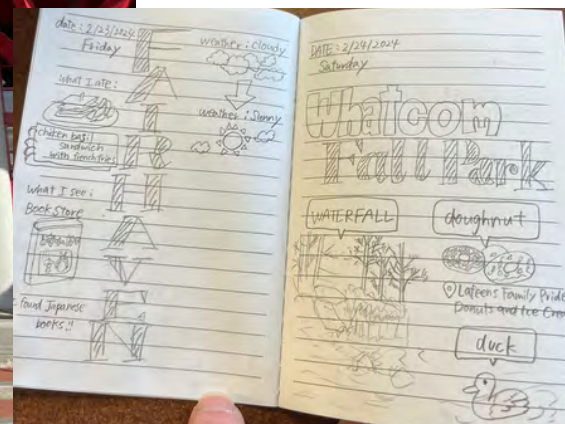 date: 2/23/2024
Friday
weather: cloudy
weather: Sunny
What I ate:
chicken basil
sandwich
with french fries
What I see:
Book Store
I found Japanese
books!!
FAIRHAVEN
DATE: 2/24/2024
Saturday
Whatcom
Fall Park
WATERFALL
doughnut
Lafeens Family Pride
Donuts and Ice Crea
duck